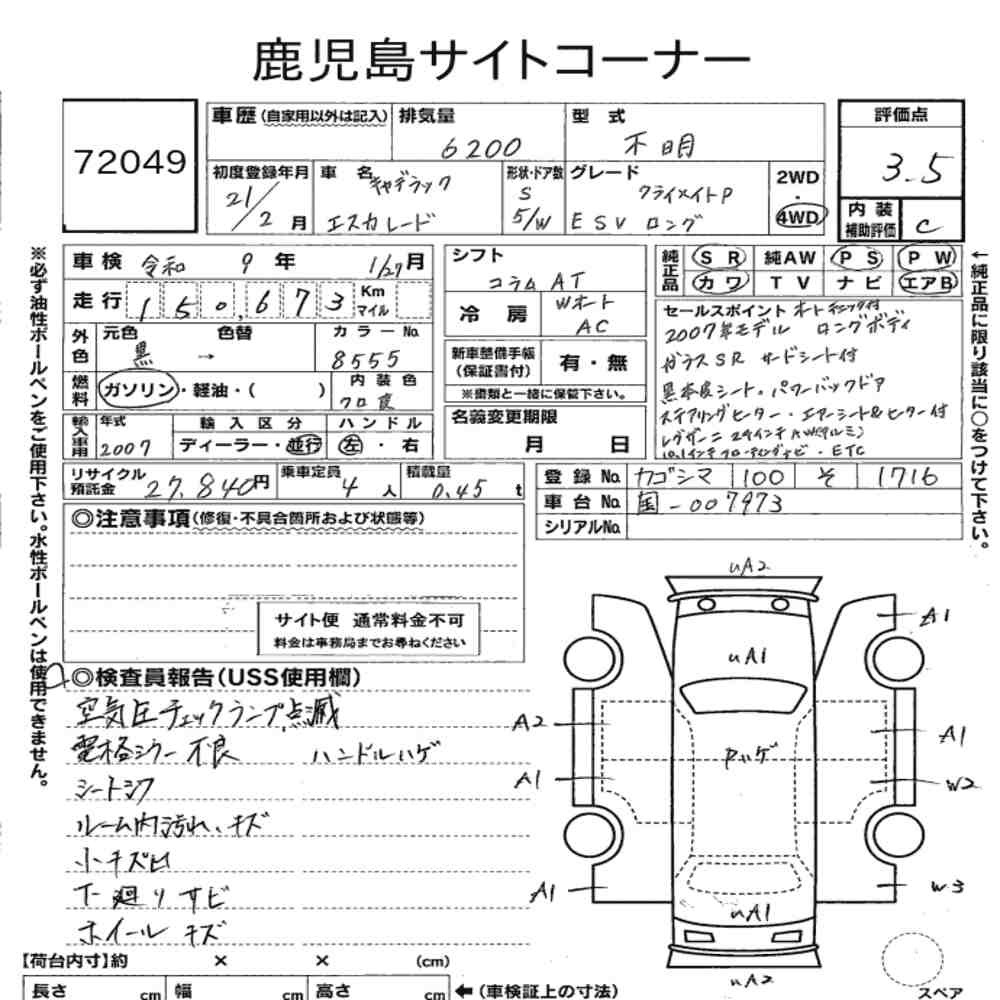 鹿児島サイトコーナー
72049
車歴(自家用以外は記入) 排気量 6200 型式 不明
評価点 3.5
初度登録年月 21/2月 車名 キャデラック エスカレード 形状・ドア数 S 5/W グレード クライメイトP ESV ロング 2WD・4WD
内装補助評価 C
車検 令和 9年 1/27月
走行 150,673 Km マイル
外色 元色 黒 → 色替 カラーNo. 8555
燃料 ガソリン・軽油・( ) 内装色 クロ皮
輸入車用 年式 2007 輸入区分 ディーラー・並行 ハンドル 左・右
シフト コラムAT
冷房 Wオート AC
新車整備手帳(保証書付) 有・無
※書類と一緒に保管下さい。
名義変更期限 月 日
純正品 SR 純AW PS PW
カワ TV ナビ エアB
セールスポイント
2007年モデル ロングボディ
ガラスSR サードシート付
黒本皮シート。パワーバックドア
ステアリングヒーター・エアーシート&ヒーター付
・ETC
リサイクル預託金 27,840円 乗車定員 4人 積載量 0.45t
登録No. カゴシマ 100 そ 1716
車台No. 国-007973
シリアルNo.
◎注意事項(修復・不具合箇所および状態等)
サイト便 通常料金不可
料金は事務局までお尋ねください
◎検査員報告(USS使用欄)
空気圧チェックランプ点滅
電格ミラー不良 ハンドルハゲ
シートシワ
ルーム内汚れ、キズ
小キズ凹
下廻りサビ
ホイールキズ
uA2
A1
uA1
A2
A1
Pハゲ
A1
W2
A1
W3
uA1
uA2
スペア
【荷台内寸】約 × × (cm)
長さ cm 幅 cm 高さ cm ←(車検証上の寸法)
※必ず油性ボールペンをご使用下さい。水性ボールペンは使用できません。
←純正品に限り該当に○をつけて下さい。